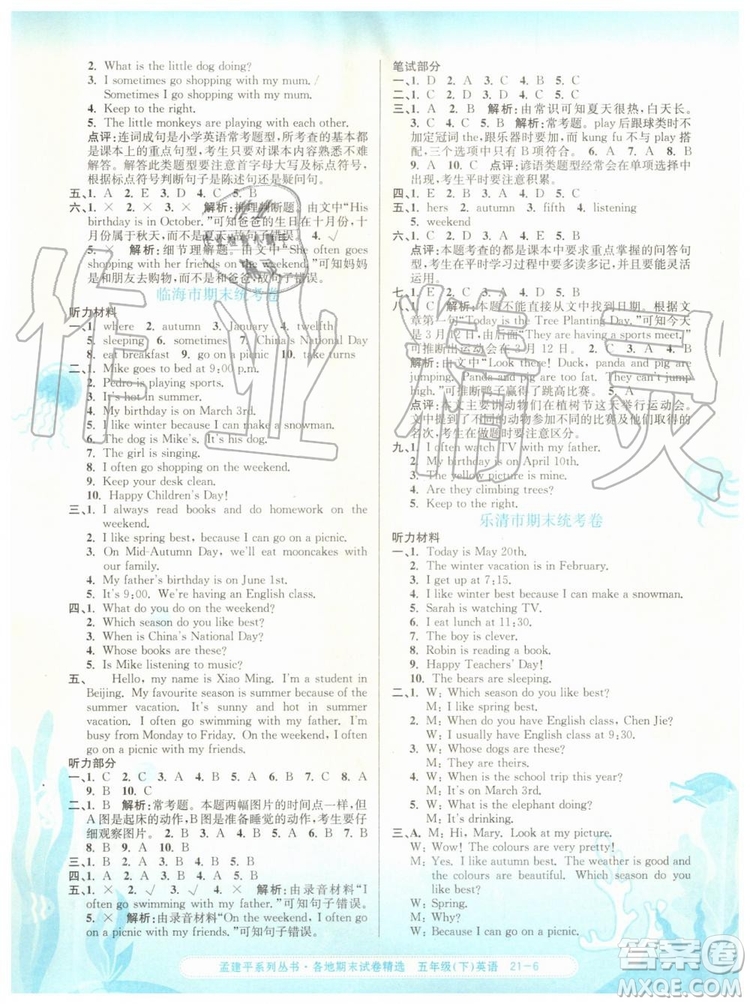 2. What is the little dog doing?
3. I sometimes go shopping with my mum. /
Sometimes I go shopping with my mum.
4. Keep to the right.
5. The little monkeys are playing with each other.
点评:连词成句是小学英语常考题型,所考查的基本都
是课本上的重点句型,考生只要对课本内容熟悉不难
解答。解答此类题型要注意首字母大写和标点符号,
根据标点符号判断句子是陈述句还是疑问句。
五、1. A 2. E 3. D 4. C 5. B
六、1. × 2. × 3. × 解析:推理判断题。由文中“His
birthday is in October.”可知爸爸的生日在十月份,十
月份属于秋天,而不是夏天,故句子错误。 4. √
5. × 解析:细节理解题。由文中“She often goes
shopping with her friends on the weekend.”可知妈妈
是和朋友去购物,而不是和爸爸,故句子错误。
临海市期末统考卷
听力材料
一、1. where 2. autumn 3. January 4. twelfth
5. sleeping 6. sometimes 7. China's National Day
8. eat breakfast 9. go on a picnic 10. take turns
二、1. Mike goes to bed at 9:00 p.m.
2. Pedro is playing sports.
3. It's hot in summer.
4. My birthday is on March 3rd.
5. I like winter because I can make a snowman.
6. The dog is Mike's. It's his dog.
7. The girl is singing.
8. I often go shopping on the weekend.
9. Keep your desk clean.
10. Happy Children's Day!
三、1. I always read books and do homework on the
weekend.
2. I like spring best, because I can go on a picnic.
3. On Mid-Autumn Day, we eat mooncakes with
our family.
4. My father's birthday is on June 1st.
5. It's 9:00. We are having an English class.
四、1. What do you do on the weekend?
2. Which season do you like best?
3. When is China's National Day?
4. Whose books are these?
5. Is Mike listening to music?
五、 Hello, my name is Xiao Ming. I am a student in
Beijing. My favourite season is summer because of the
summer vacation. It's sunny and hot. In the summer
vacation, I often go swimming with my father. I'm
busy from Monday to Friday. On the weekend, I often
go on a picnic with my friends.
听力部分
一、1. C 2. C 3. A 4. A 5. B 6. B 7. C 8. A
9. B 10. C
二、1. B 解析:常考题。本题两幅图片的时间点一样,但
A图是起床的动作,B图是准备睡觉的动作,考生要仔
细观察图片。 2. B 3. A 4. A 5. A 6. B 7. B
8. B 9. A 10. A
三、1. C 2. C 3. B 4. A 5. B
四、1. A 2. A 3. C 4. B 5. B
五、1. × 2. √ 3. √ 4. × 解析:由录音材料“I
often go swimming with my father.”可知句子错误。
5. × 解析:由录音材料“On the weekend, I often
go on a picnic with my friends.”可知句子错误。
笔试部分
一、1. D 2. A 3. C 4. B 5. C
二、1. C 2. A 3. D 4. B 5. C
三、1. A 2. B 解析:由常识可知夏天很热,白天变长。
3. C 4. B 5. C 解析:常考题。play后跟球类时不
加定冠词the,跟乐器时要加,而且kung fu与play不
搭配,考生要注意积累。 6. B 7. C 8. B
9. A 10. C 点评:谚语类题型经常会在单项选择中
出现,考生平时要注意积累。
四、1. D 2. E 3. A 4. B 5. C
五、1. hers 2. autumn 3. fifth 4. listening
5. weekend
六、1. C 2. D 3. A 4. E 5. B
点评:本题考查的都是课本中要求掌握的问答句
型,考生平时要多读多记,理解它们的意思并能灵
活运用。
七、1. E 2. B 3. C 4. A 5. D
八、1. C 解析:本题不能直接从文中找到答案,根据文
章第一句“Today is the Tree Planting Day.”可知今天
是3月12日,后面提到“They are having a sports meet.”,
可推断出运动会在3月12日。 2. C 3. A 4. A 5. C
解析:由文中“Look there! Duck, panda and pig are
jumping. Panda and pig are too fat. They are tired.”
可推断鸭子赢得了跳高比赛。
点评:本文主要讲述动物们在植树节这天举行运动
会,出现了不同的动物参加不同的比赛以及所取得的
名次,考生在做题时要注意区分。
九、1. I often watch TV with my father.
2. My birthday is on April 10th.
3. Whose picture is it?
4. The elephants are climbing trees.
5. Keep to the right.
乐清市期末统考卷
听力材料
一、1. Today is May 20th.
2. The winter vacation is in February.
3. I get up at 7:15.
4. I like winter best because I can make a snowman.
5. Sarah is watching TV.
6. I eat lunch at 11:30.
7. The boy is clever.
8. Robin is reading a book.
9. Happy Teachers' Day!
10. The bears are sleeping.
二、1. W: Which season do you like best?
M: I like spring best.
2. M: When do you have English class, Chen Jie?
W: I usually have English class at 9:30.
3. W: Whose dogs are these?
M: They are mine.
4. M: When is the school trip this year?
W: It's in October.
5. W: What is the elephant doing?
M: It's drinking water.
三、A: M: Hi, Mary. Look at my picture.
W: Wow! The colours are very pretty!
M: Yes. I like autumn best. The weather is good and
the colours are beautiful. Which season do
you like best?
W: Spring.
M: Why?
W: Because I often go on a picnic.
孟建平系列丛书·各地期末试卷精选 五年级(下)英语 21-6
作业精灵
答案圈
MXQE.COM